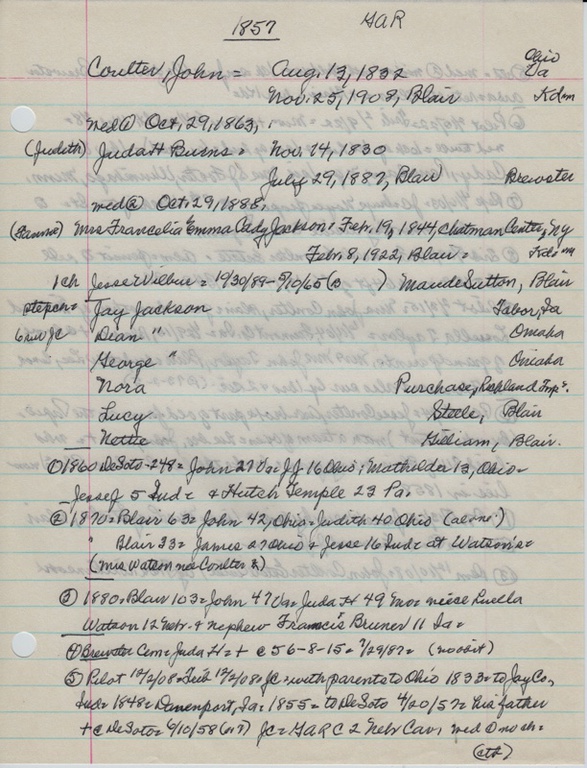 1857 GAR
Ohio
Coulter, John = Aug. 13, 1832 Va
Nov. 25, 1908, Blair Kdsm
med① Oct. 29, 1863, :
(Judith) Judah Burns = Nov. 14, 1830
July 29, 1887, Blair Brewster
med② Oct. 29, 1888,
(Fannie) Mrs Francelia Emma Cady Jackson: Feb. 19, 1844, Chatman Center, Ny
Feb. 8, 1922, Blair =
1 ch Jesse Wilbur = 1/30/89 - 5/10/65 ( ) Maude Sutton, Blair
stepch = Jay Jackson Tabor, Ia
6 Dean " Omaha
George " Omaha
Nora Purchase, Richland Twp.
Lucy Steele, Blair
Nettie Gilliam, Blair.
① 1860 DeSoto - 248 = John 27 Va = J.J. 16 Ohio; Mathilda 13, Ohio =
Jesse J 5 Ind = & Hutch Temple 23 Pa.
② 1870 = Blair 63 = John 42, Ohio = Judith 40 Ohio
" Blair 33 = James 27 Ohio & Jesse 16 Ind = at Watson's =
(Mrs Watson nee Coulter)
③ 1880 = Blair 103 = John 47 Va = Judah 49 Mo = niece Luella
Watson 12 Nebr. & nephew Francis Bruner 11 Ia =
④ Brewster Cem = Judah = + c 56-8-15 = 7/29/87 = (no obit)
⑤ Pilot 12/2/08 = Trib 12/2/08 = JC = with parents to Ohio 1833 = to Jay Co,
Ind = 1848 = Davenport, Ia = 1855 = to DeSoto 4/20/57 = his father
+ c DeSoto = 6/10/58 JC = GAR C 2 Nebr Cav; med ① no ch =